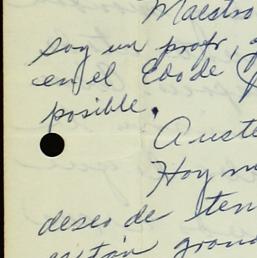 Maestro
soy un profr,
en el Edo de
posible.
A uste
Hoy m
deseo de ten
grand